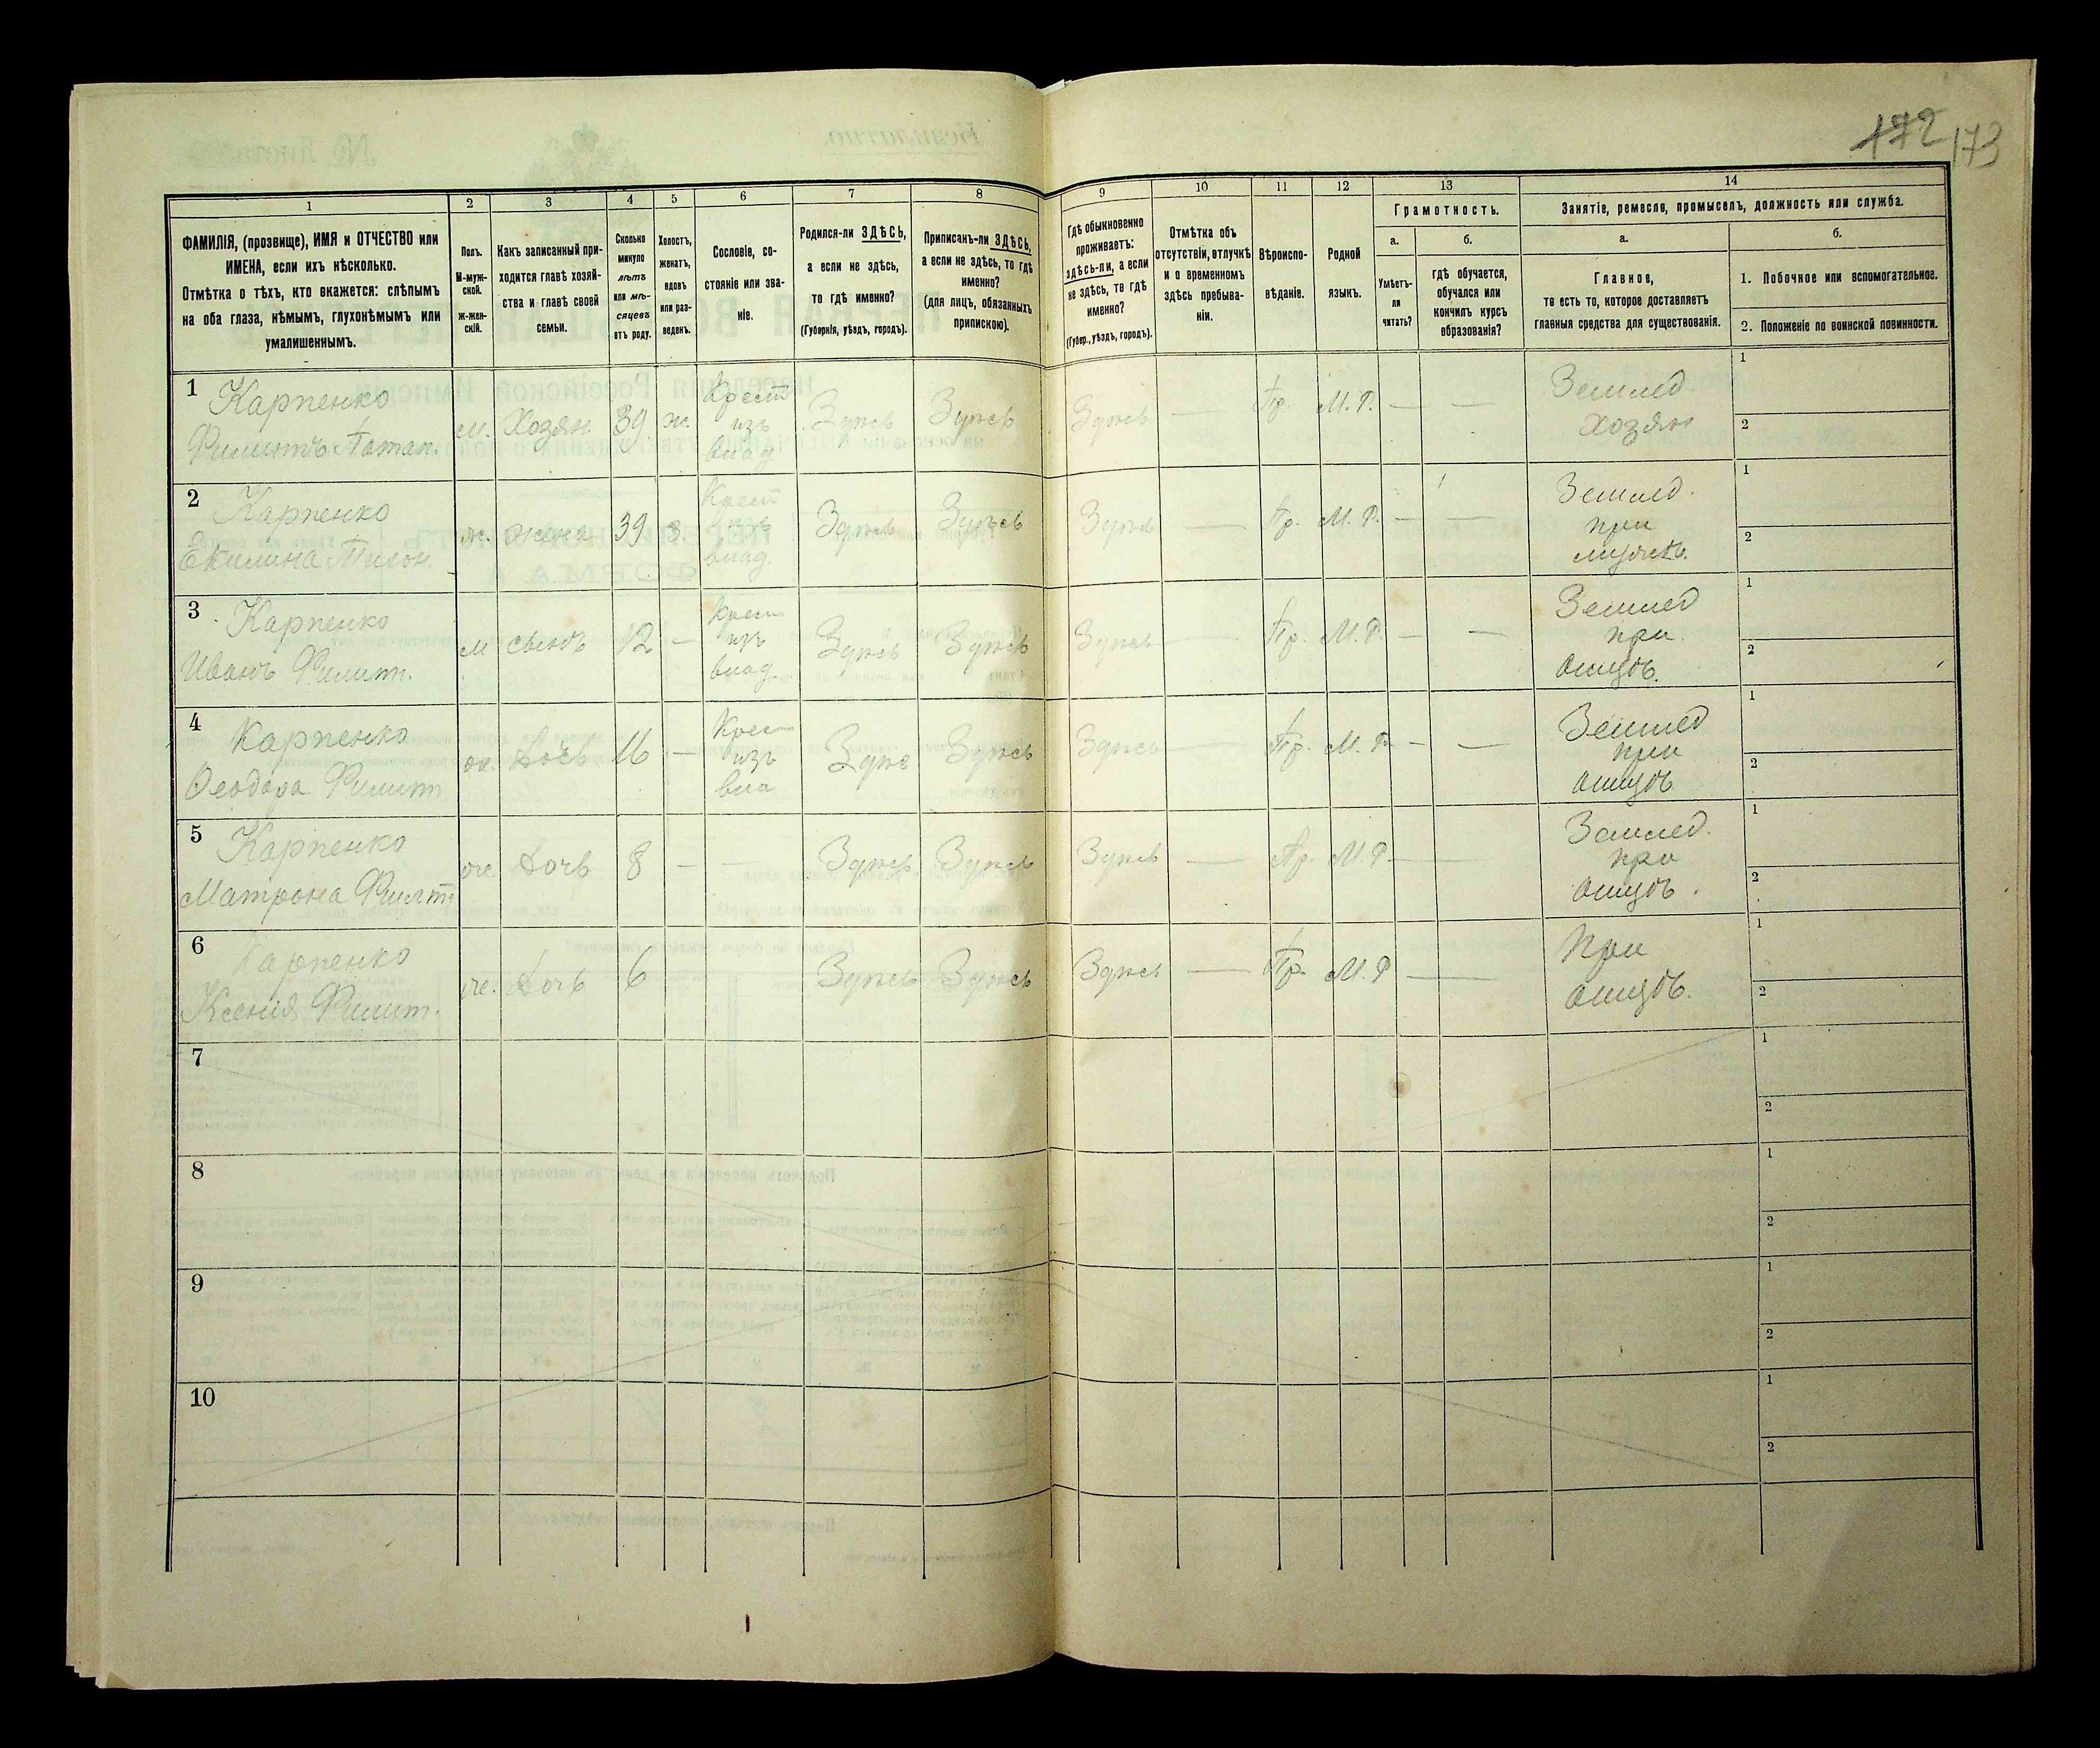 172 173
1 2 3 4 5 6 7 8 9 10 11 12 13 14
ФАМИЛІЯ, (прозвище), ИМЯ и ОТЧЕСТВО или
ИМЕНА, если ихъ нѣсколько.
Отмѣтка о тѣхъ, кто окажется: слѣпымъ
на оба глаза, нѣмымъ, глухонѣмымъ или
умалишеннымъ.
Полъ.
М-муж-
ской.
Ж-жен-
скій.
Какъ записанный при-
ходится главѣ хозяй-
ства и главѣ своей
семьи.
Сколько
минуло
лѣтъ
или мѣ-
сяцевъ
отъ роду.
Холостъ,
женатъ,
вдовъ
или раз-
веденъ.
Сословіе, со-
стояніе или зва-
ніе.
Родился-ли ЗДѢСЬ,
а если не здѣсь,
то гдѣ именно?
(Губернія, уѣздъ, городъ).
Приписанъ-ли ЗДѢСЬ,
а если не здѣсь, то гдѣ
именно?
(для лицъ, обязанныхъ
припискою).
Гдѣ обыкновенно
проживаетъ:
здѣсь-ли, а если
не здѣсь, то гдѣ
именно?
(Губер., уѣздъ, городъ).
Отмѣтка объ
отсутствіи, отлучкѣ
и о временномъ
здѣсь пребыва-
ніи.
Вѣроиспо-
вѣданіе.
Родной
языкъ.
Грамотность.
а.
Умѣетъ-
ли
читать?
б.
гдѣ обучается,
обучался или
кончилъ курсъ
образованія?
Занятіе, ремесло, промыселъ, должность или служба.
а.
Главное,
то есть то, которое доставляетъ
главныя средства для существованія.
б.
1. Побочное или вспомогательное.
2. Положеніе по воинской повинности.
1 Карпенко
Филиппъ Потап.
м. Хозяин 39 ж.
Крест
изъ
влад
Здѣсь Здѣсь Здѣсь — Пр. М. Р. — —
Землед
хозяин
1
2
2 Карпенко
Екилина
ж. жена 39 з.
Крест
изъ
влад.
Здѣсь Здѣсь Здѣсь — Пр. М. Р. — —
Землед.
при
мужѣ.
1
2
3 Карпенко
Иванъ Филипп.
м сынъ 12 —
Крест
изъ
влад.
Здѣсь Здѣсь Здѣсь — Пр. М. Р. — —
Землед
при
отцѣ.
1
2
4 Карпенко
Феодора Филипп
ж. Дочь 16 —
Крес
изъ
вла
Здѣс Здѣсь Здѣсь — Пр. М. Р. — —
Землед
при
отцѣ
1
2
5 Карпенко
Матрона Филипп
ж. Дочь 8 — — Здѣсь Здѣсь Здѣсь — Пр. М. Р. —
Землед.
при
отцѣ.
1
2
6 Карпенко
Ксенія Филипп.
ж. Дочь 6 — Здѣсь Здѣсь Здѣсь — Пр. М. Р —
При
отцѣ.
1
2
7
1
2
8
1
2
9
1
2
10
1
2